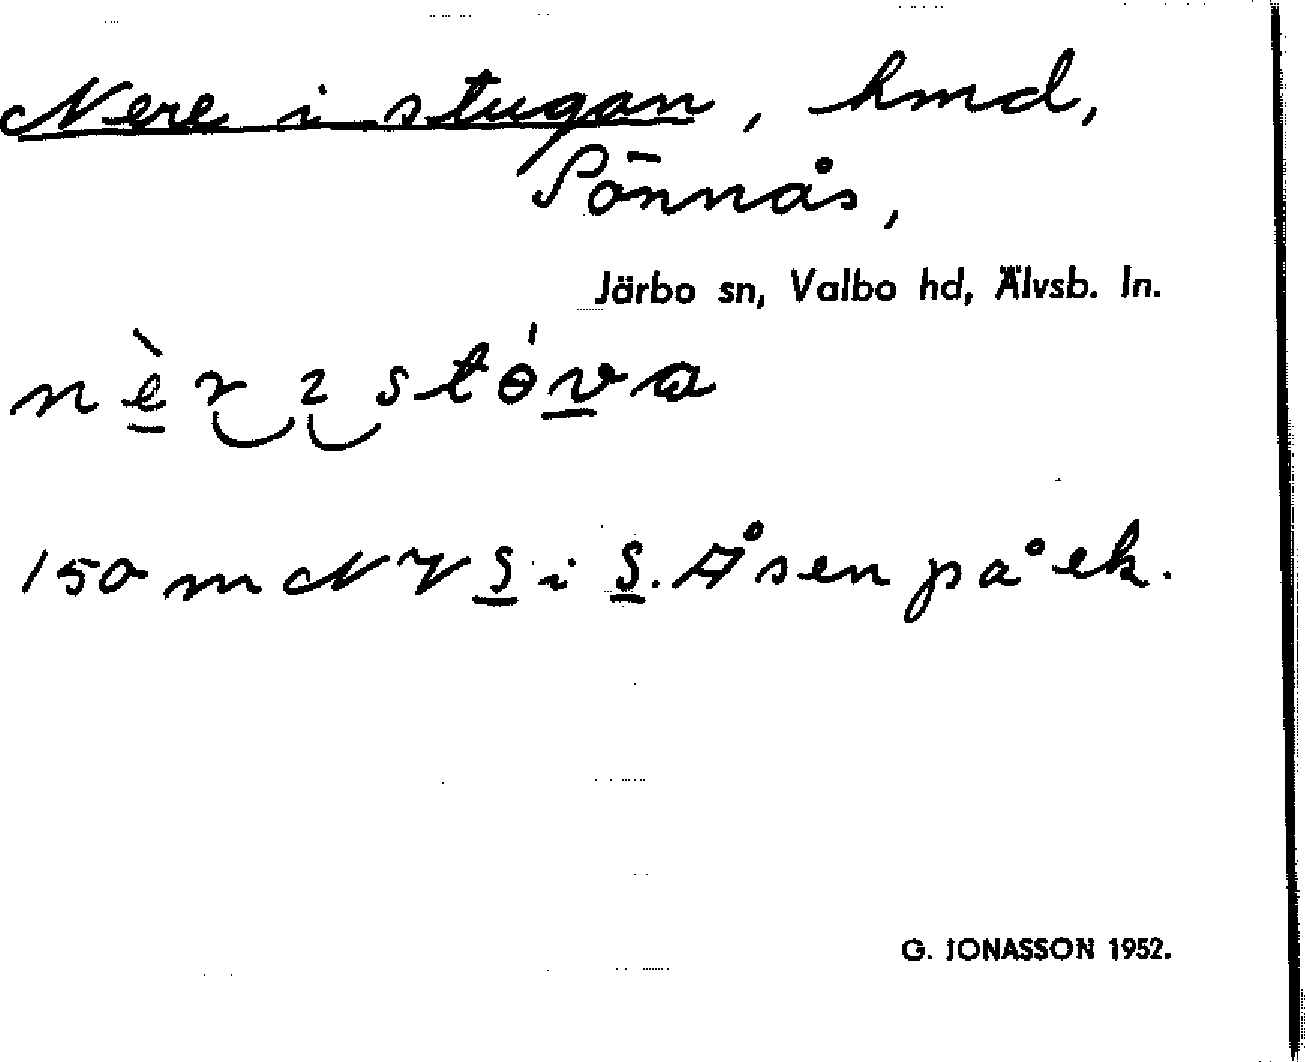 Nere i stugan, hmd,
Sönnås,
Järbo sn, Valbo hd, Älvsb. ln.
nèr ɩ stɵ́va
150 m NV S i S. Åsen på ek.
G. JONASSON 1952.